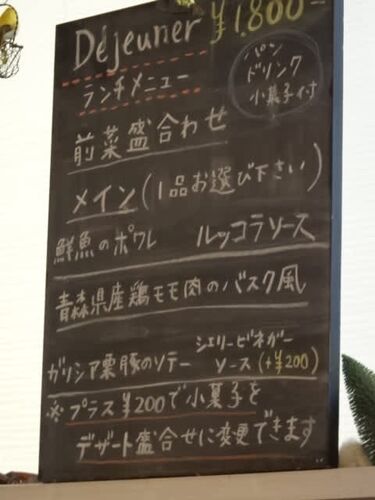 Déjeuner ¥1,800-
ランチメニュー
パン
ドリンク
小菓子付
前菜盛合わせ
メイン(1品お選び下さい)
鮮魚のポワレ ルッコラソース
青森県産鶏モモ肉のバスク風
ガリシア栗豚のソテー シェリービネガー
ソース(+¥200)
※プラス¥200で小菓子を
デザート盛合せに変更できます